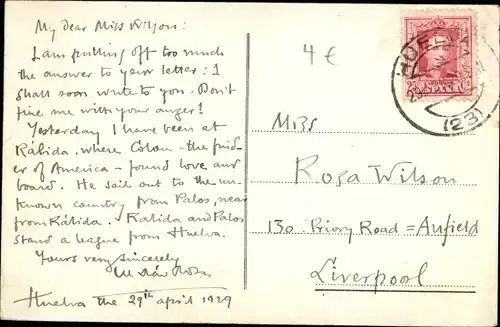 My dear Miss Wilson:
I am putting off too much
the answer to your letter: I
shall soon write to you. Don't
fine me with your anger!
Yesterday I have been at
Rábida, where Colom - the find-
er of America - found love and
board. He sail out to the un-
known country from Palos, near
from Rábida. Rabida and Palos
stand a league from Huelva.
Yours very sincerely
Huelva the 29th april 1929
4 €
HUELVA
(23)
Miss
Rosa Wilson
130 Priory Road = Anfield
Liverpool